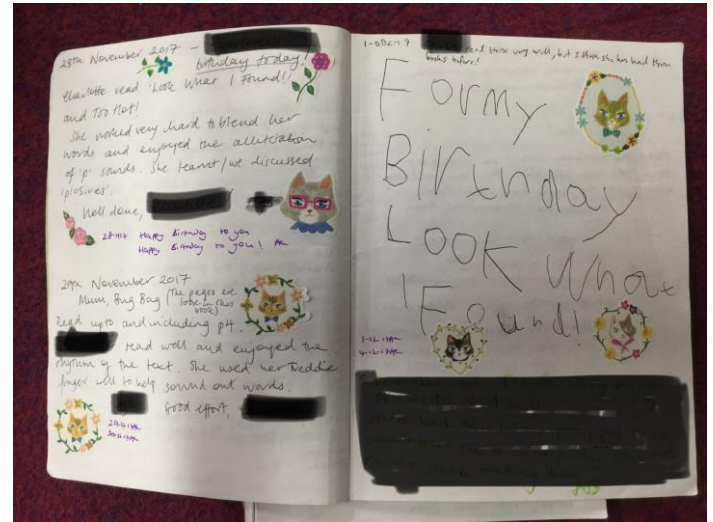 28th November 2017 -
birthday today!
Charlotte read 'Look What I Found!'
and Too Hot!
She worked very hard to blend her
words and enjoyed the alliteration
of 'p' sounds. She learnt/we discussed
'plosives'.
Well done,
28.11.17 Happy Birthday to you
Happy Birthday to you!
29th November 2017
Mum, Bug Bug (The pages are
loose in this
book)
Read up to and including p4.
read well and enjoyed the
rhythm of the text. She used her Freddie
finger well to help sound out words.
Good effort,
1-Dec-17
read these very well, but I think she has had these
books before!
For my
Birthday
Look What
I Found!